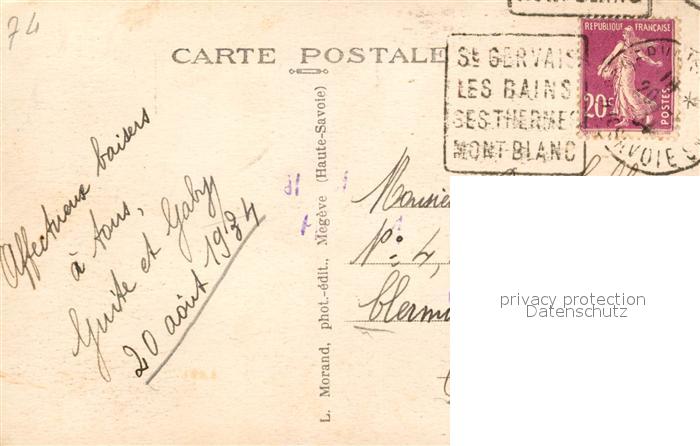 74
CARTE POSTALE
MONT-BLANC
St GERVAIS
LES BAINS
SES THERMES
MONT-BLANC
REPUBLIQUE FRANÇAISE
20c
POSTES
SAVOIE
Affectueux baisers
à tous,
Guite et Gaby
20 août 1934
L. Morand, phot.-édit., Megève (Haute-Savoie)
Monsie
No: 4,
privacy protection
Datenschutz